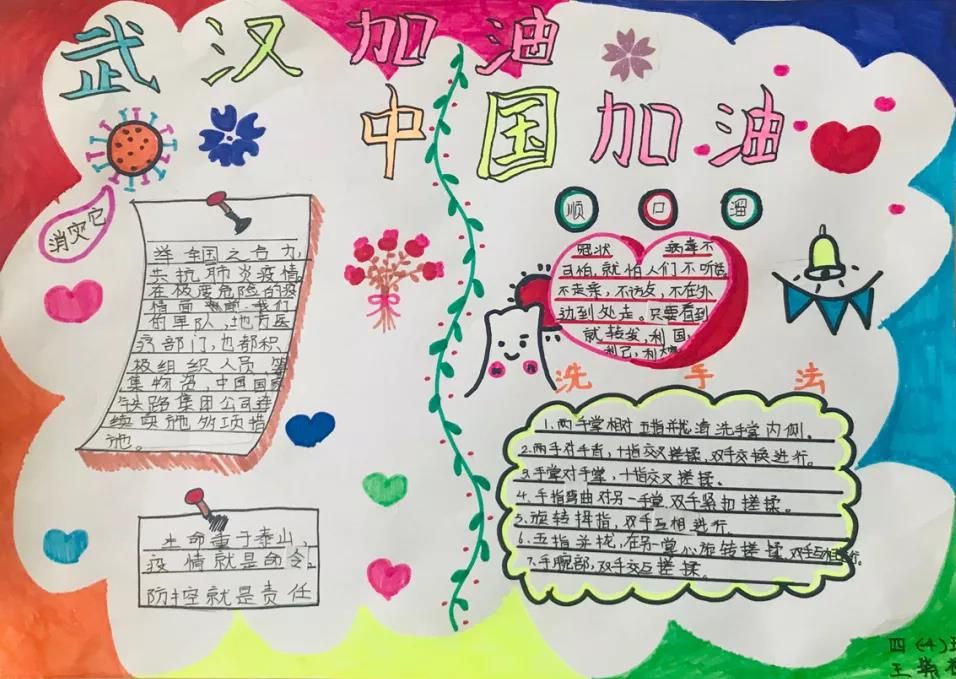 武汉加油
中国加油
消灾它
举全国之合力,
共抗肺炎疫情,
在极度危险的疫
情面 我们
的军队,地方医
疗部门,也都积
极组织人员筹
集物资,中国国家
铁路集团公司连
续实施多项措
施。
生命重于泰山,
疫情就是命令。
防控就是责任
顺口溜
冠状病毒不
可怕,就怕人们不听话
不走亲,不访友,不在外
边到处走。只要看到
就转发,利国,
利己,利大
洗手法
1.两手掌相对五指并拢清洗手掌内侧。
2.两手对手背,十指交叉搓揉,双手交换进行。
3.手掌对手掌,十指交叉搓揉。
4.手指弯曲对另一手掌,双手紧扣搓揉。
5.旋转拇指,双手互相进行。
6.五指并拢,在另掌心旋转搓揉双手互相进行。
7.手腕部,双手交互搓揉。
四(4)班
王